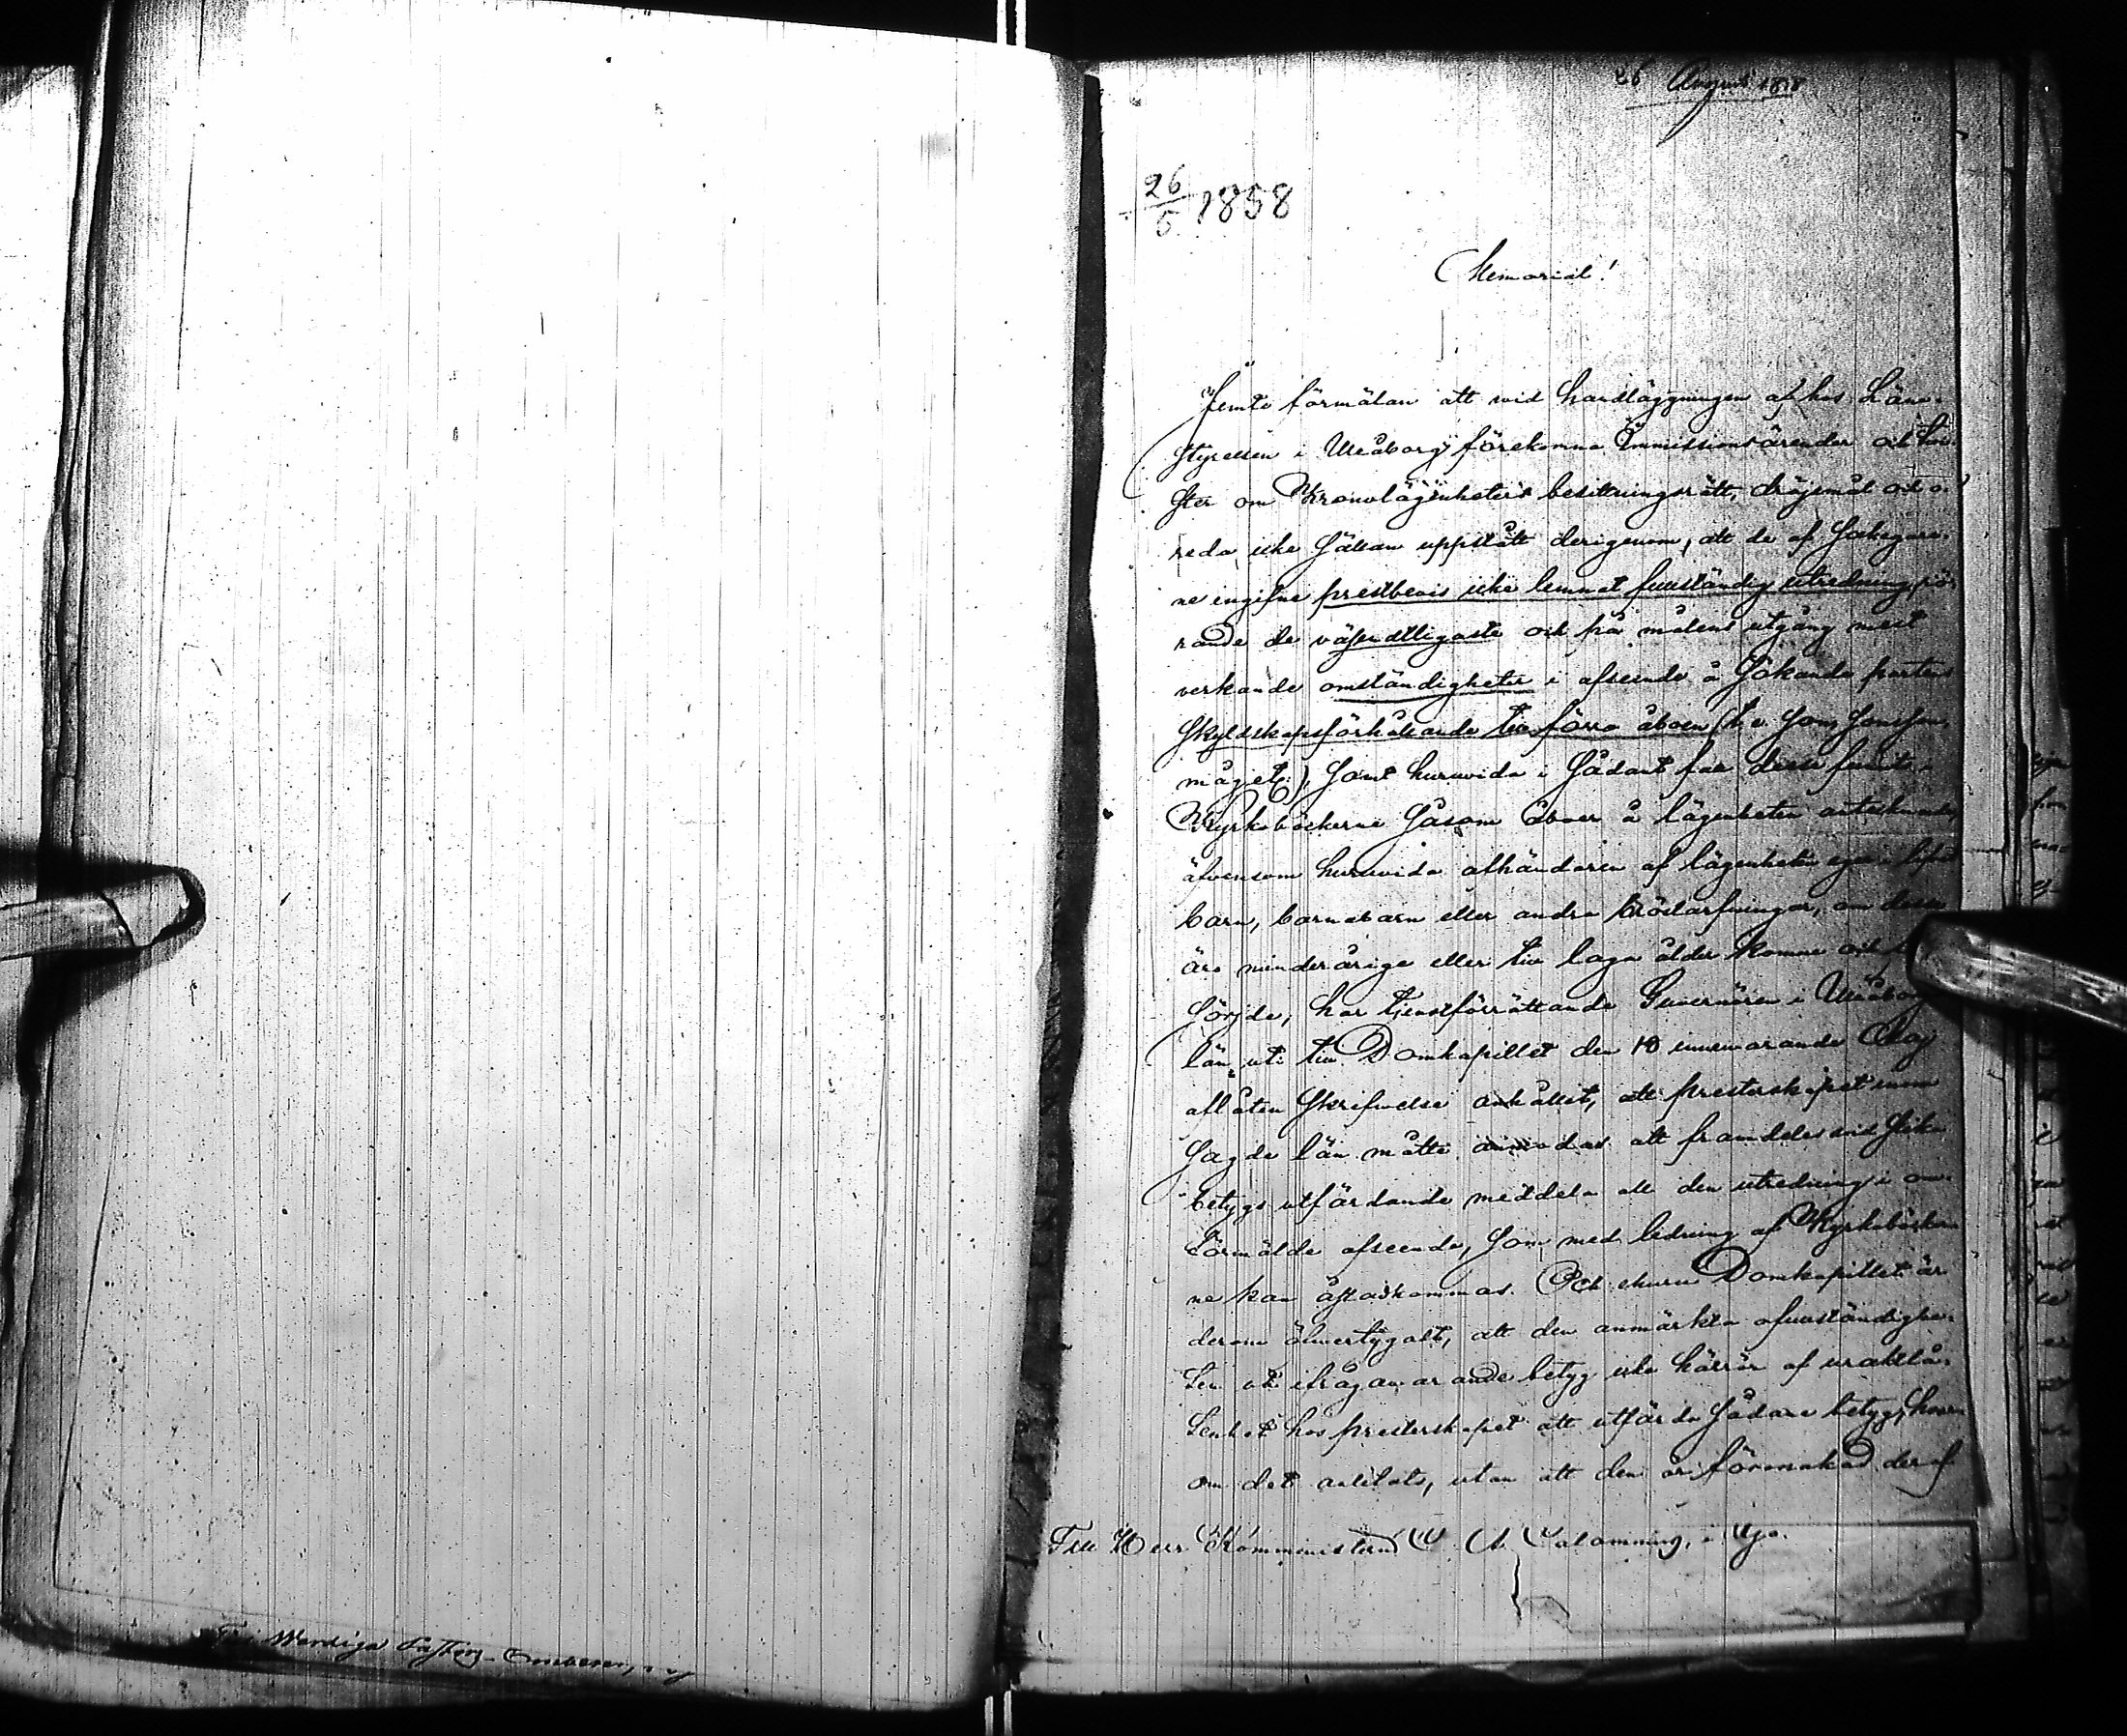 26 August 1858
26/5 1858
Memorial!
Jemte förmälan att vid handläggningen af hos Läns-
styrelsen i Uleåborg förekomne Immissionsärender och tvi-
ster om Kronolägenheters besittningsrätt, dröjsmål och o-
reda icke sällan uppstått derigenom, att de af sökegare-
ne ingifne prestbevis icke lemnat fullständig utredning rö-
rande de väsendtligaste och på målens utgång mest
verkande omständigheter i afseende å sökande partens
skyldskapsförhållande till förra åboen
måget), samt huruvida i sådant fall desse funnits i
Kyrkoböckerne såsom åboer å lägenheten antecknade,
äfvensom huruvida afhändaren af lägenheten eger i lifvet
barn, barnabarn eller andra bröstarfvingar, om desse
äro minderårige eller till laga ålder komne och
sörjde, har tjenstförrättande Guvernören i Uleåborgs
län, uti till Domkapitlet den 10 innevarande Maj
aflåten skrifvelse anhållit, att presterskapet inom
sagde län måtte anmodas att framdeles vid slika
betygs utfärdande meddela all den utredning i om-
förmälde afseende, som med ledning af Kyrkoböcker-
ne kan åstadkommas. Och ehuru Domkapitlet är
derom öfvertygadt, att den anmärkta ofullständighe-
ten uti ifrågavarande betyg icke härrör af uraktlå-
tenhet hos presterskapet att utfärda sådane betyg, hvar-
om det anlitats, utan att den är förorsakad deraf
Till Herr Komministern C. A. Calamnius, i Ijo.